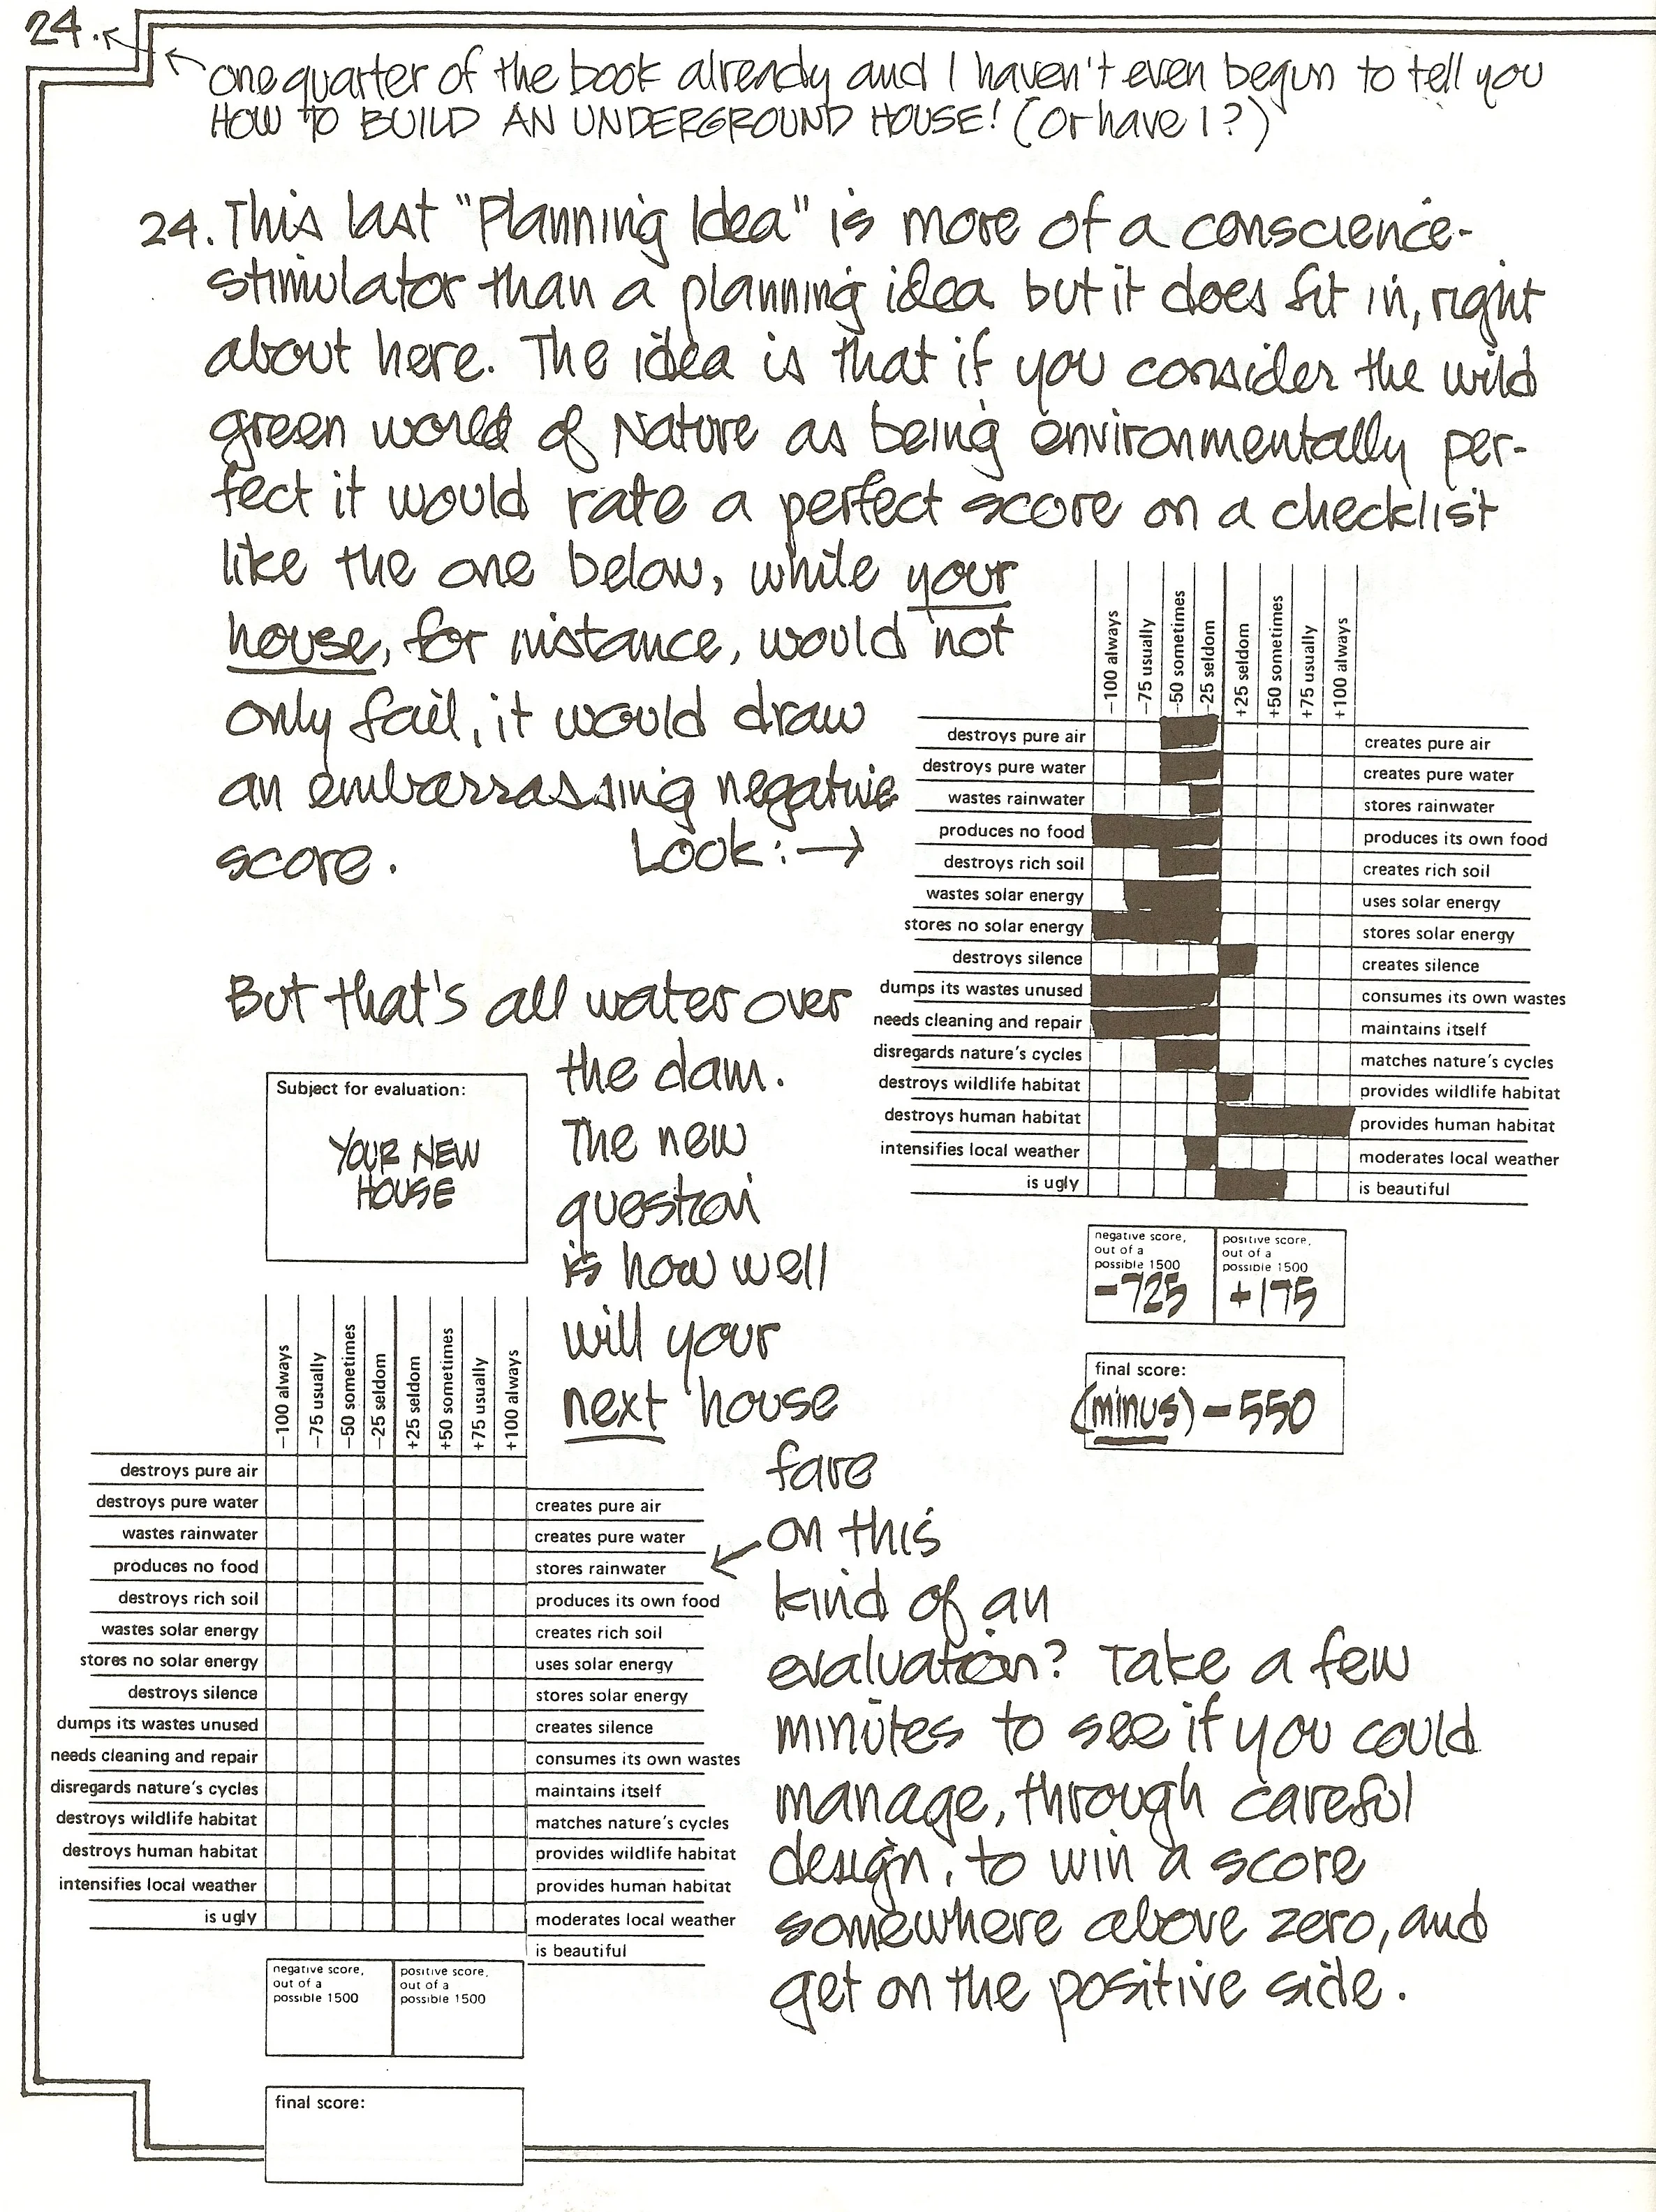 24.
one quarter of the book already and I haven't even begun to tell you
HOW TO BUILD AN UNDERGROUND HOUSE! (Or have I?)
24. This last "Planning Idea" is more of a conscience-
stimulator than a planning idea but it does fit in, right
about here. The idea is that if you consider the wild
green world of Nature as being environmentally per-
fect it would rate a perfect score on a checklist
like the one below, while your
house, for instance, would not
only fail, it would draw
an embarrassing negative
score. Look:→
-100 always
-75 usually
-50 sometimes
-25 seldom
+25 seldom
+50 sometimes
+75 usually
+100 always
destroys pure air creates pure air
destroys pure water creates pure water
wastes rainwater stores rainwater
produces no food produces its own food
destroys rich soil creates rich soil
wastes solar energy uses solar energy
stores no solar energy stores solar energy
destroys silence creates silence
dumps its wastes unused consumes its own wastes
needs cleaning and repair maintains itself
disregards nature's cycles matches nature's cycles
destroys wildlife habitat provides wildlife habitat
destroys human habitat provides human habitat
intensifies local weather moderates local weather
is ugly is beautiful
negative score,
out of a
possible 1500
-725
positive score,
out of a
possible 1500
+175
final score:
(minus) -550
But that's all water over
the dam.
The new
question
is how well
will your
next house
fare
on this
kind of an
evaluation? Take a few
minutes to see if you could
manage, through careful
design, to win a score
somewhere above zero, and
get on the positive side.
Subject for evaluation:
YOUR NEW
HOUSE
-100 always
-75 usually
-50 sometimes
-25 seldom
+25 seldom
+50 sometimes
+75 usually
+100 always
destroys pure air
destroys pure water creates pure air
wastes rainwater creates pure water
produces no food stores rainwater
destroys rich soil produces its own food
wastes solar energy creates rich soil
stores no solar energy uses solar energy
destroys silence stores solar energy
dumps its wastes unused creates silence
needs cleaning and repair consumes its own wastes
disregards nature's cycles maintains itself
destroys wildlife habitat matches nature's cycles
destroys human habitat provides wildlife habitat
intensifies local weather provides human habitat
is ugly moderates local weather
is beautiful
negative score,
out of a
possible 1500
positive score,
out of a
possible 1500
final score: